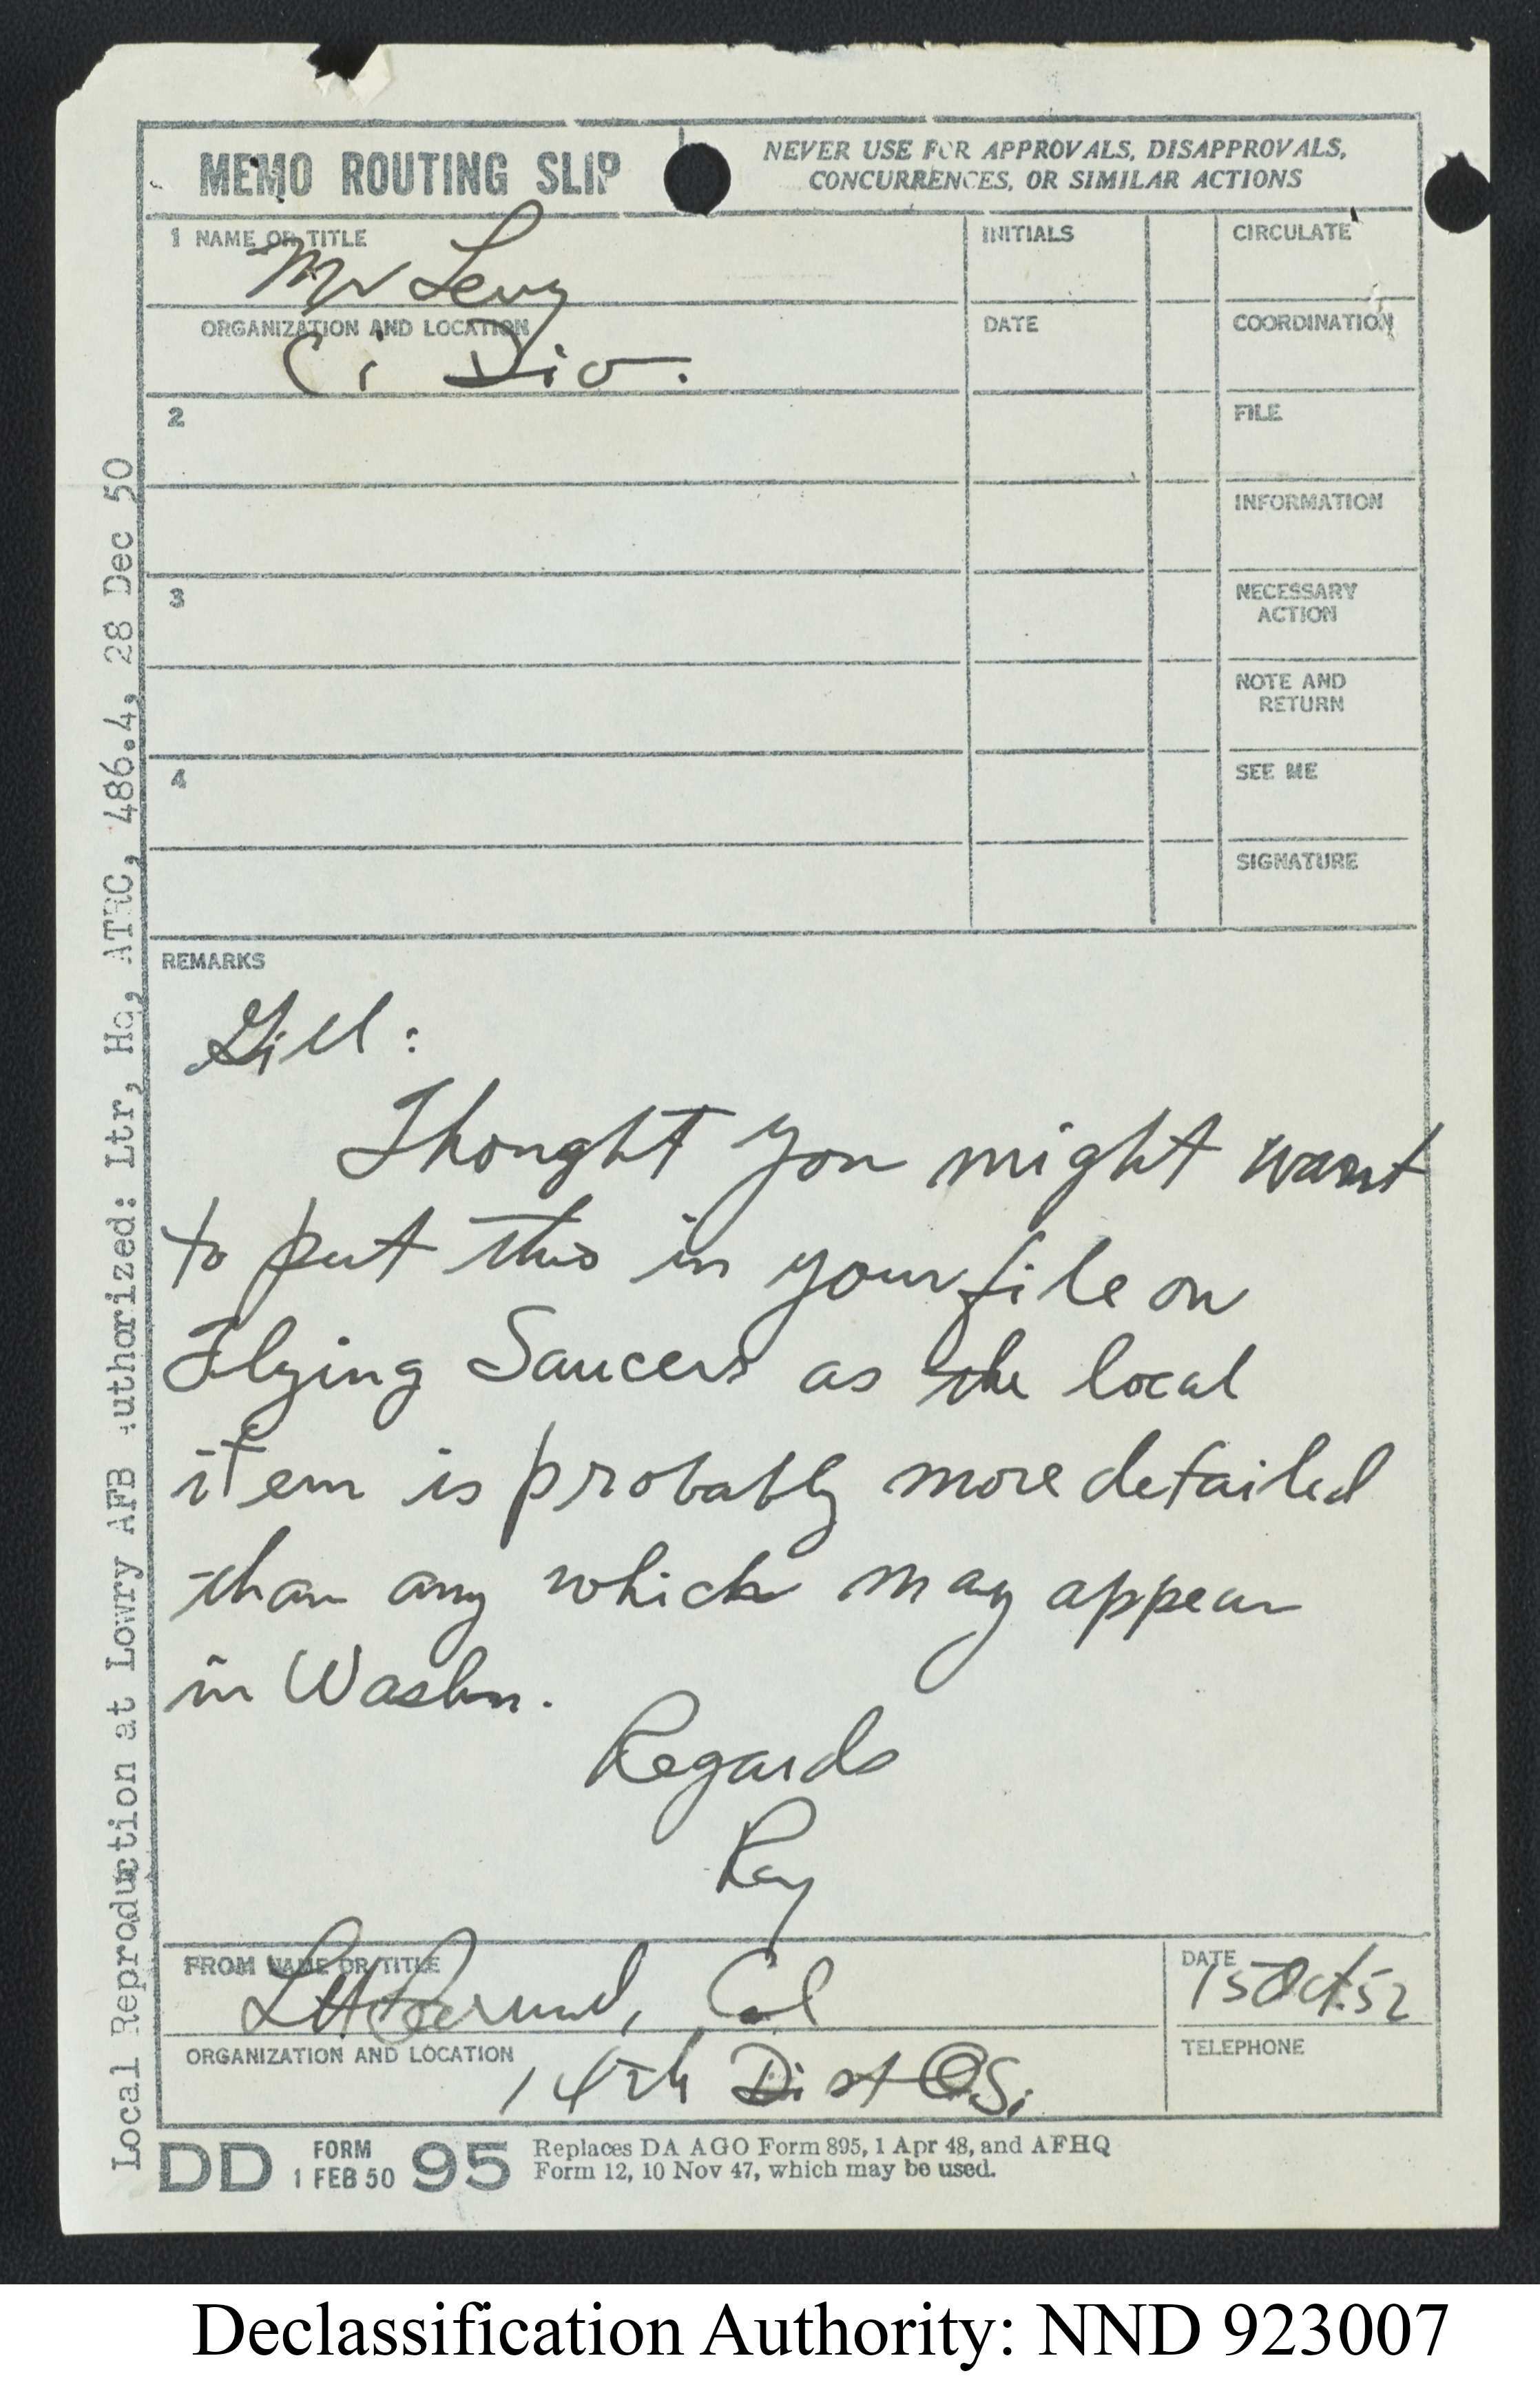 MEMO ROUTING SLIP
NEVER USE FOR APPROVALS, DISAPPROVALS,
CONCURRENCES, OR SIMILAR ACTIONS
1 NAME OR TITLE
Mr Levy
INITIALS
CIRCULATE
ORGANIZATION AND LOCATION
Ci Div.
DATE
COORDINATION
2
FILE
INFORMATION
3
NECESSARY
ACTION
NOTE AND
RETURN
4
SEE ME
SIGNATURE
REMARKS
Gill:
Thought you might want
to put this in your file on
Flying Saucers as the local
item is probably more detailed
than any which may appear
in Washn.
Regards
Ray
FROM NAME OR TITLE
Col
DATE
15 Oct 52
ORGANIZATION AND LOCATION
14th Dist OSi
TELEPHONE
DD FORM 95
1 FEB 50
Replaces DA AGO Form 895, 1 Apr 48, and AFHQ
Form 12, 10 Nov 47, which may be used.
Local Reproduction at Lowry AFB authorized: Ltr, Hq, ATRC, 486.4, 28 Dec 50
Declassification Authority: NND 923007